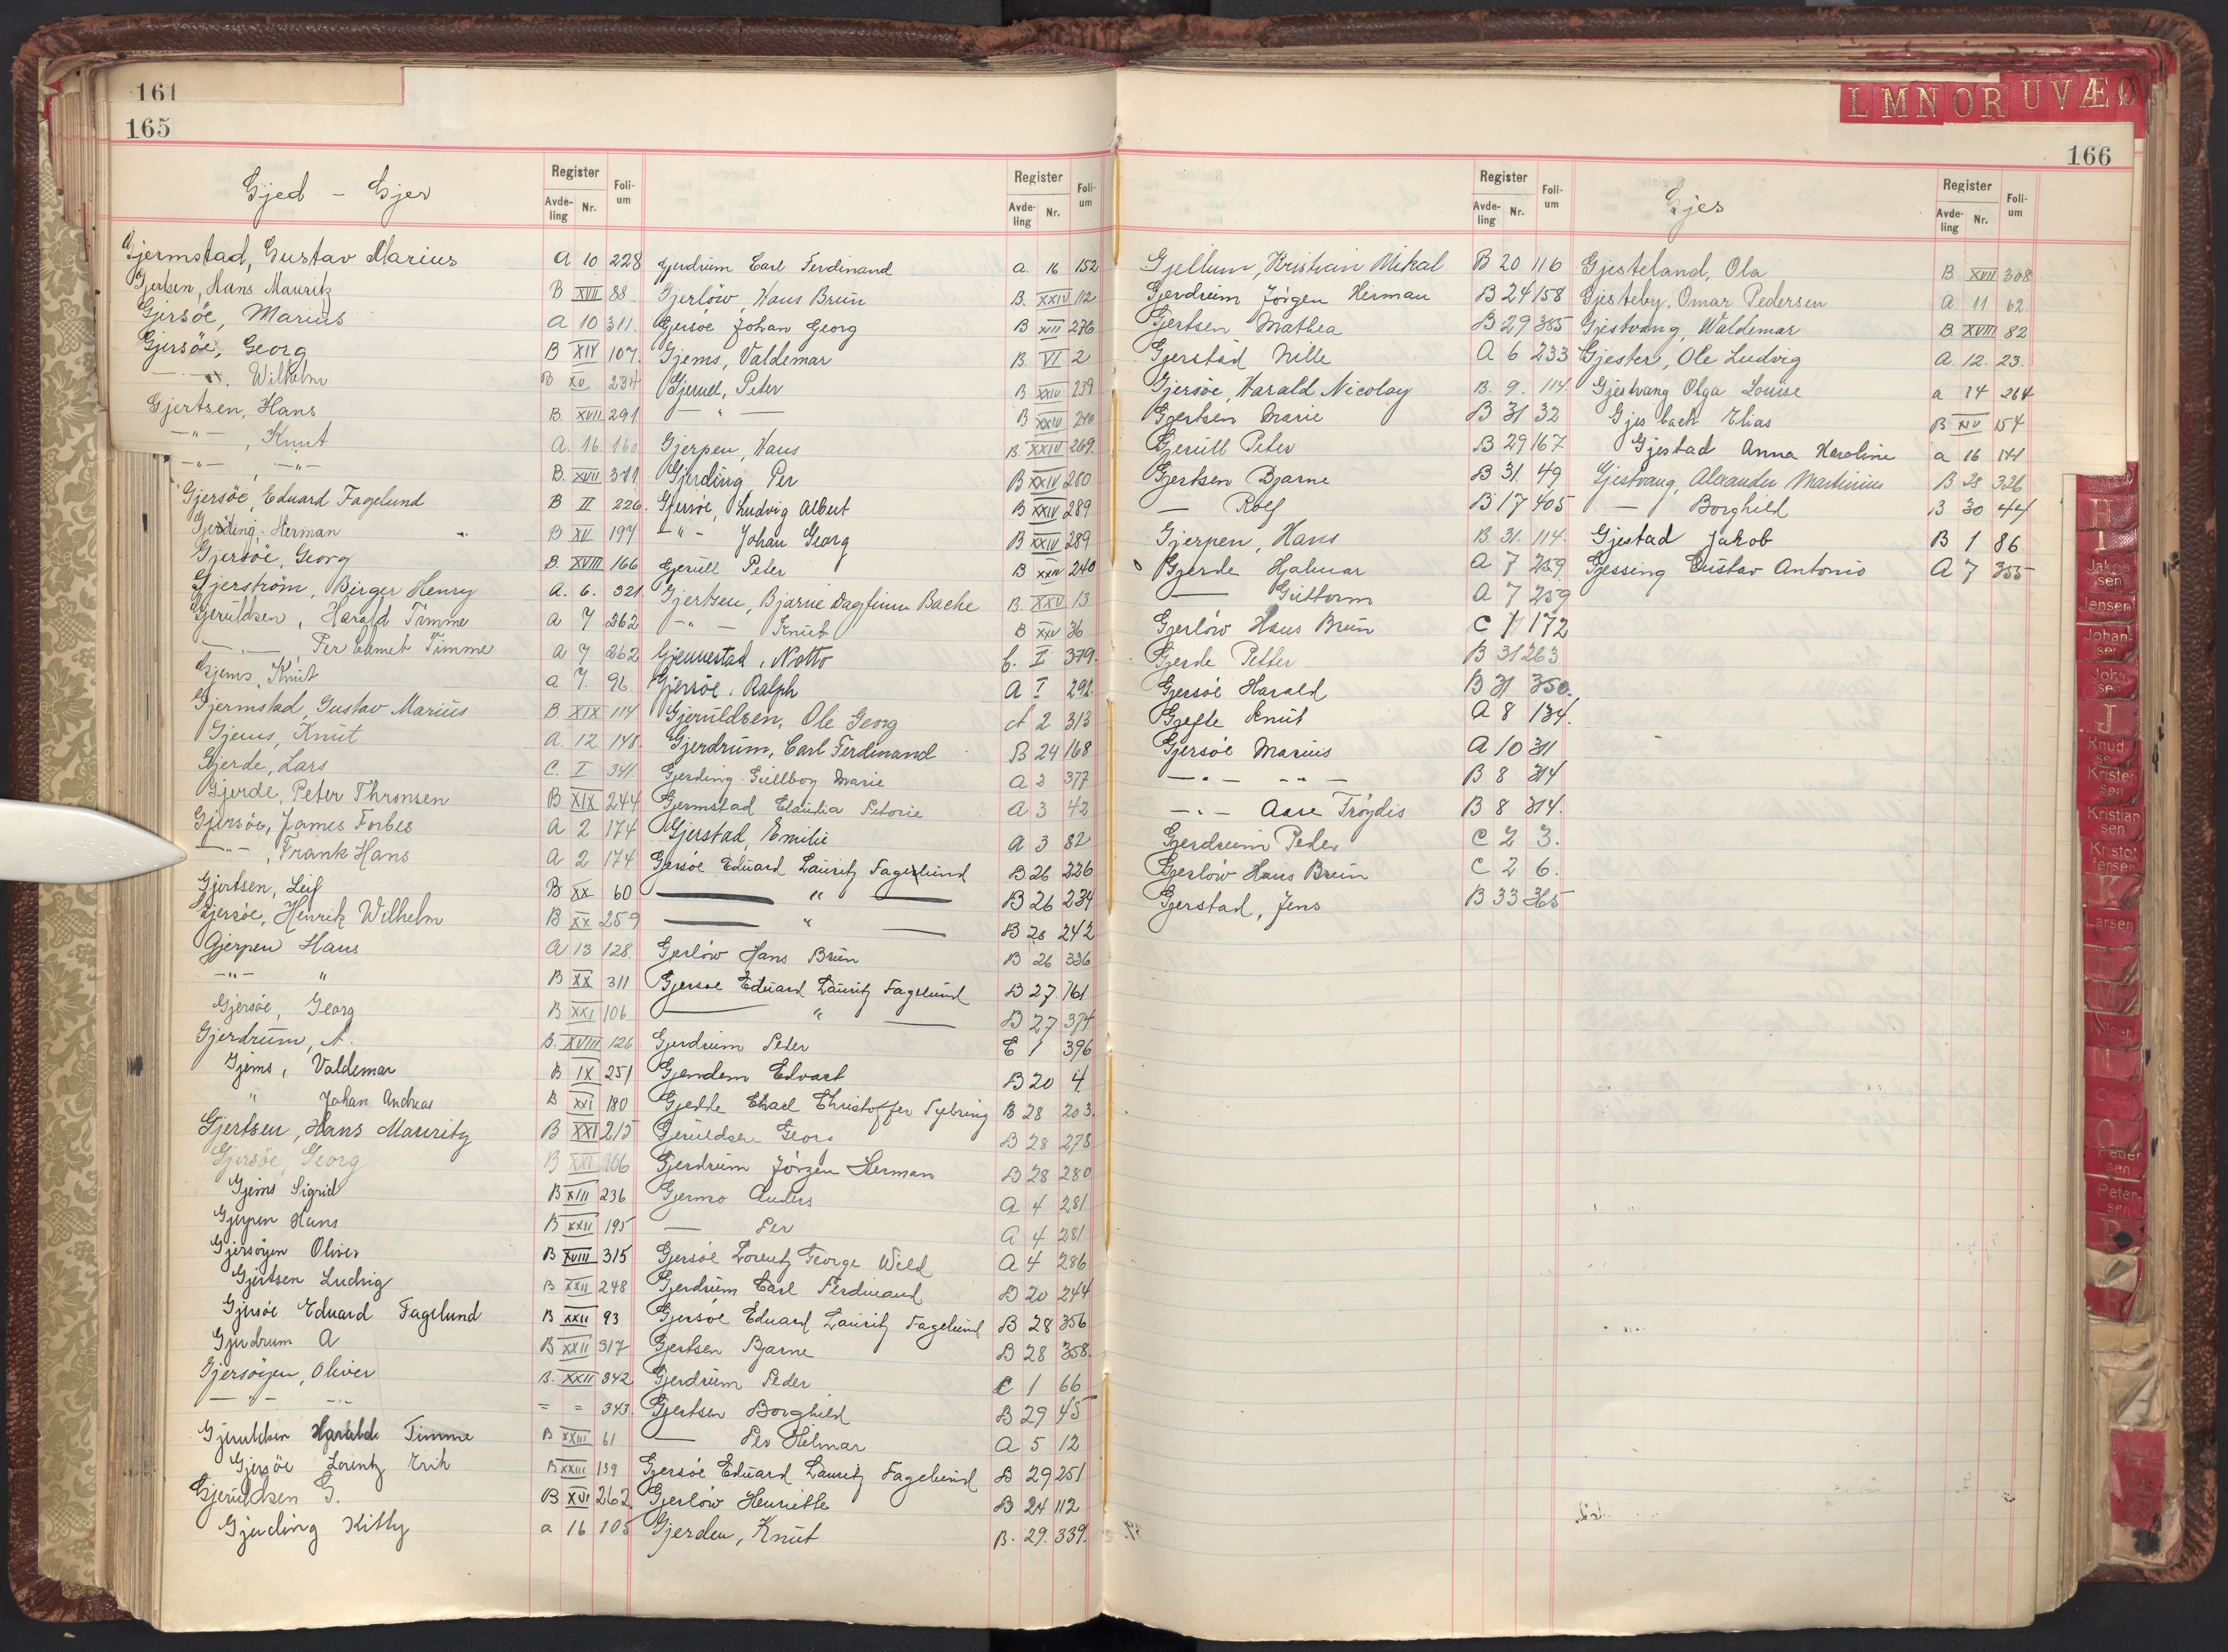 161
165
Gjed - Gjer
Register
Avde-ling Nr. Foli-um
Gjermstad, Gustav Marius A 10 228
Gjertsen, Hans Mauritz B XVII 88
Gjersöe, Marius A 10 311.
Gjersöe, Georg B XIV 107.
— " —, Wilhelm B XV 234
Gjertsen, Hans B. XVII 291
— " —, Knut A. 16. 160
— " — — " — B. XVII 371
Gjersöe, Eduard Fagelund B II 226.
Gjerding, Herman B XV 197
Gjersöe, Georg B XVIII 166
Gjerström, Birger Henry A. 6. 321.
Gjeruldsen, Harald Timme A 7 262
— " —, Per Timme A 7 262
Gjems, Knut A 7. 96.
Gjermstad, Gustav Marius B XIX 114
Gjems, Knut A. 12 148.
Gjerde, Lars C. I 341
Gjerde, Peter Thronsen B XIX 244
Gjersöe, James Forbes A 2 174
— " —, Frank Hans A 2 174
Gjertsen, Leif B XX 60
Gjersöe, Henrik Wilhelm B XX 259
Gjerpen Hans A 13 128.
— " — " B XX 311
Gjersöe, Georg B XXI 106
Gjerdrum, A. B. XVIII 126
Gjems, Valdemar B IX 251
" Johan Andreas B XXI 180
Gjertsen, Hans Mauritz B XXI 215
Gjersöe, Georg B XXI 106
Gjems Sigrid B XIII 236
Gjerpen Hans B XXII 195
Gjersöyen Oliver B XVIII 315
Gjertsen Ludvig B XXII 248
Gjersöe Eduard Fagelund B XXII 93
Gjerdrum A B XXII 317
Gjersöyen, Oliver B. XXII 342
— " — — " — = = 343.
Gjeruldsen Harald Timme B XXIII 61
Gjersöe Lorentz Erik B XXIII 139
Gjeruldsen G. B XVI 262.
Gjerding Kitty a 16 105
Register
Avde-ling Nr. Foli-um
Gjerdrum Carl Ferdinand a. 16 152
Gjerlöw, Hans Brun B. XXIV 112
Gjersöe Johan Georg B XIII 276
Gjems, Valdemar B. VI 2
Gjerull, Peter B XXIV 239
— " — B XXIV 240
Gjerpen, Hans B. XXIV 269.
Gjerding Per B XXIV 280
Gjersöe, Ludvig Albert B XXIV 289
— " — Johan Georg B XXIV 289
Gjerull Peter B XXIV 240
Gjertsen, Bjarne Dagfinn Bache B. XXV 13
— " — Knut B XXV 36
Gjennestad, Notto C. I 379.
Gjersöe, Ralph A I 292.
Gjeruldsen, Ole Georg A 2 313
Gjerdrum, Carl Ferdinand B 24 168
Gjerding Gullborg Marie A 2 377
Gjermstad Claudia Petorie A 3 42
Gjerstad, Emilie A 3 82
Gjersöe Eduard Lauritz Fagelund B 26 226
— " — B 26 234
— " — B 26 242
Gjerlöw Hans Brun B 26 336
Gjersoe Eduard Lauritz Fagelund B 27. 161
— " — B 27 374
Gjerdrum Peder C 1 396
Gjendem Edvart B 20 4
Gjedde Christoffer B 28 203.
Gjeruldsen Georg B 28 278
Gjerdrum Jörgen Herman B 28 280
Gjermo Anders A 4 281
— Per A 4 281
Gjersöe Lorentz George Wild A 4 286
Gjerdrum Carl Ferdinand B 20 244
Gjersöe Eduard Lauritz Fagelund B 28 356
Gjertsen Bjarne B 28 358.
Gjerdrum Peder C 1 66
Gjertsen Borghild B 29 45
— Per Hilmar A 5 12
Gjersöe Eduard Lauritz Fagelund B 29 251
Gjerlöw Henriette B 24 112
Gjerden, Knut B. 29. 339.
L M N O R U V Æ Ø
166
Register
Avde-ling Nr. Foli-um
Gjellum, Kristian Mikal B 20 116
Gjerdrum Jörgen Herman B 24 158
Gjertsen Mathea B 29 385
Gjerstad Nille A 6 233
Gjersöe, Harald Nicolay B. 9. 114
Gjertsen Marie B 31 32
Gjerull Peter B 29 167
Gjertsen Bjarne B 31. 49
— Rolf B 17 405
Gjerpen, Hans B. 31. 114.
Gjerde Halvar A 7 259
— Guttorm A 7 259
Gjerlöw Hans Brun C 1 172
Gjerde Petter B 31 263
Gjersöe Harald B 31 350.
Gjefle Knut A 8 134.
Gjersöe Marius A 10 311
— " — — " — B 8 314
— " — Aase Fröydis B 8 314.
Gjerdrum Peder C 2 3.
Gjerlöw Hans Brun C 2 6.
Gjerstad, Jens B 33 365
Gjes
Register
Avde-ling Nr. Foli-um
Gjesteland, Ola B XVII 308
Gjesteby, Omar Pedersen A. 11 62.
Gjestvang, Waldemar B. XVIII 82
Gjester, Ole Ludvig A. 12. 23.
Gjestvang Olga Louise a 14 264
Gjesbach Elias B XIV 154
Gjestad Anna Karoline a 16 141
Gjestvang, Alexander Martinius B 28 326
— Borghild B 30 44
Gjestad Jakob B 1 86
Gjessing Gustav Antonio A 7 355
H
I
Jakob-sen
Jensen
Johan-sen
Joh-sen
J
Knud-sen
Kristen-sen
Kristian-sen
Kristof-fersen
K
Larsen
N
O
Peder-sen
Peter-sen
P